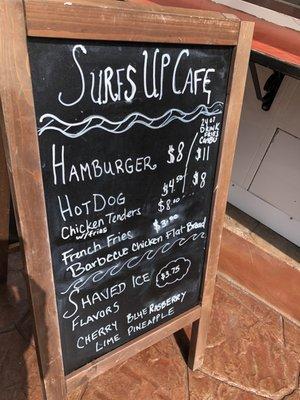 SURFS UP CAFE
24 oz
DRINK
FRIES
COMBO
HAMBURGER $8/$11
HOT DOG $4.50/$8
Chicken Tenders $8.50
w/fries
French Fries $3.00
Barbecue Chicken Flat Bread
SHAVED ICE $3.75
FLAVORS
CHERRY BLUE RASPBERRY
LIME PINEAPPLE